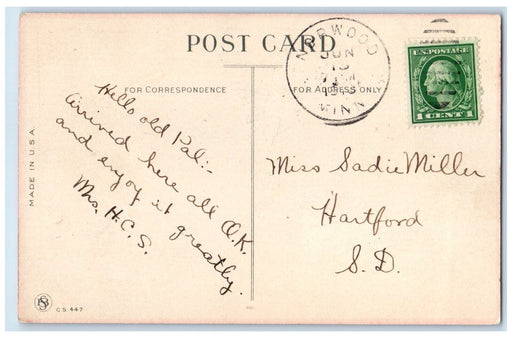 POST CARD
FOR CORRESPONDENCE
FOR ADDRESS ONLY
NORWOOD
JUN
MINN
U.S. POSTAGE
1 CENT 1
Hello old Pal:-
arrived here all O.K.
and enjoy it greatly.
Mrs. H. C. S.
Miss Sadie Miller
Hartford
S. D.
MADE IN U.S.A.
C.S. 447